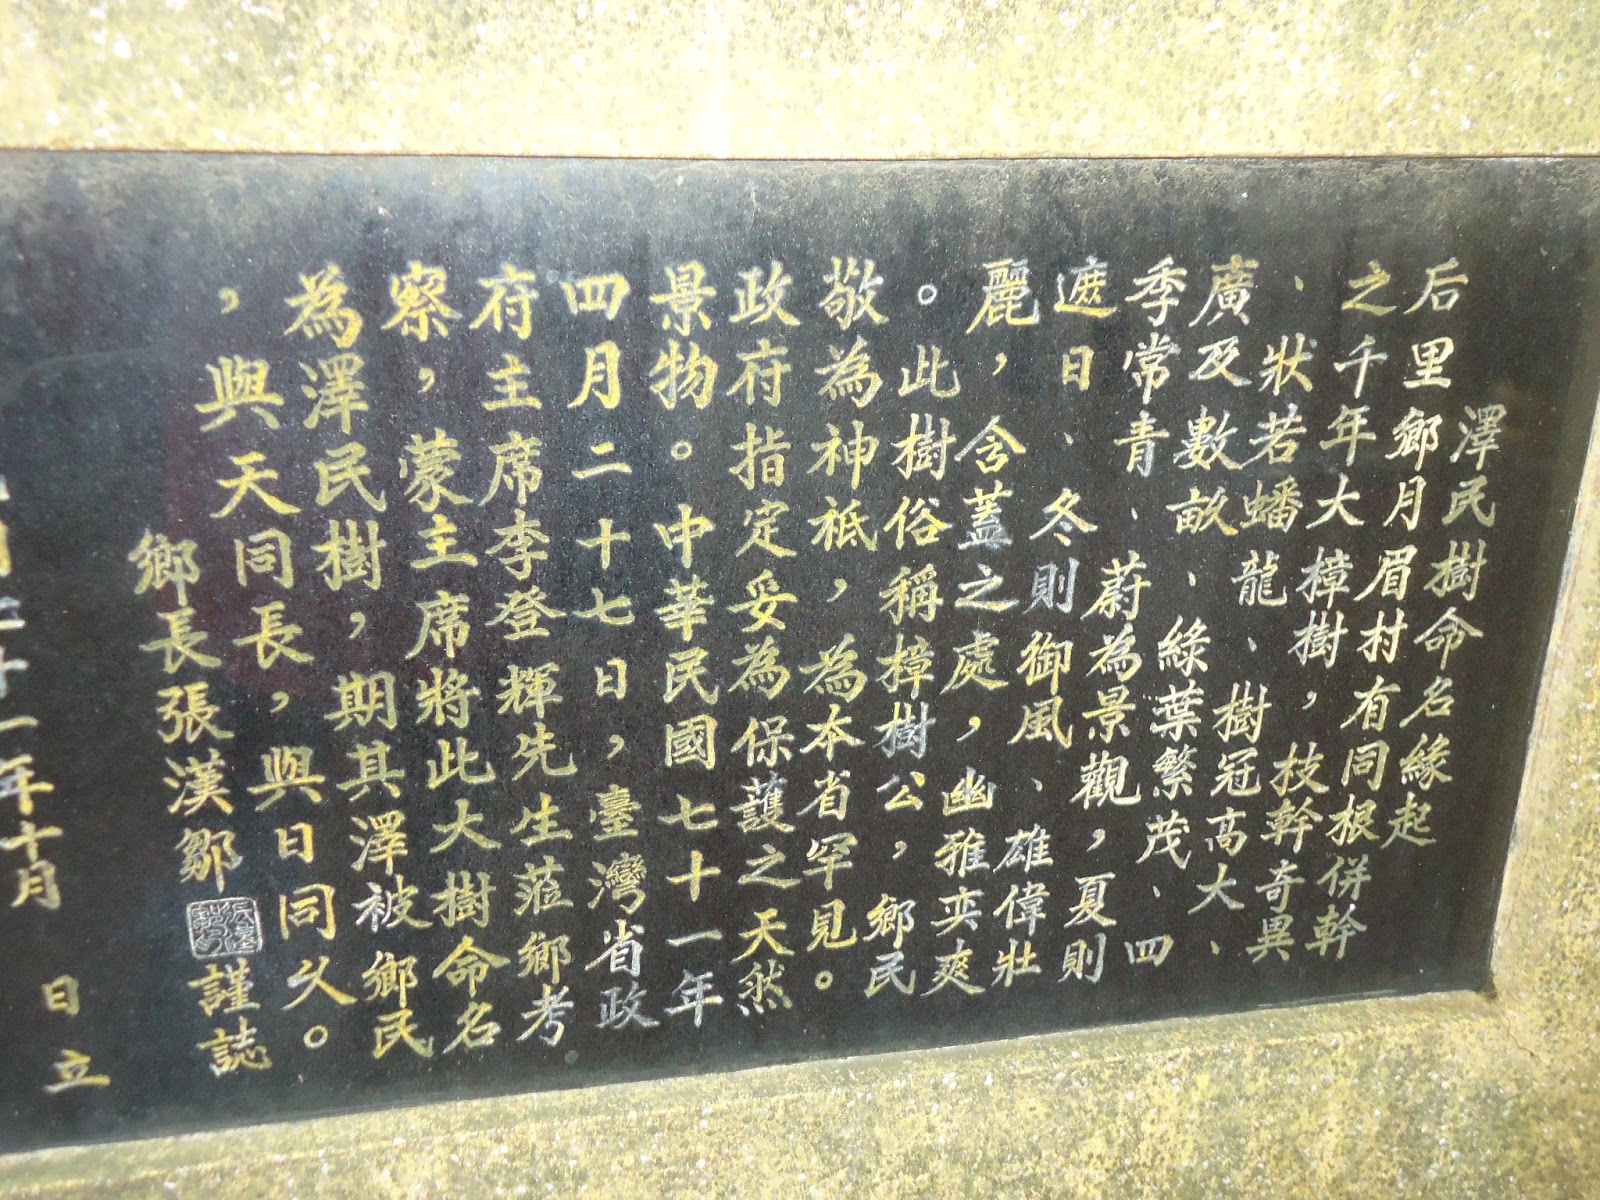 澤民樹命名緣起
后里鄉月眉村有同根併幹
之千年大樟樹，技幹奇異
、狀若蟠龍、樹冠高大、
廣及數畝、綠葉繁茂、四
季常青、蔚為景觀，夏則
遮日、冬則御風、雄偉壯
麗，含蓋之處，幽雅奕爽
。此樹俗稱樟樹公，鄉民
敬為神祇，為本省罕見。
政府指定妥為保護之天然
景物。中華民國七十一年
四月二十七日，臺灣省政
府主席李登輝先生蒞鄉考
察，蒙主席將此大樹命名
為澤民樹，期其澤被鄉民
，與天同長，與日同久。
鄉長張漢鄒謹誌
年十月　日立